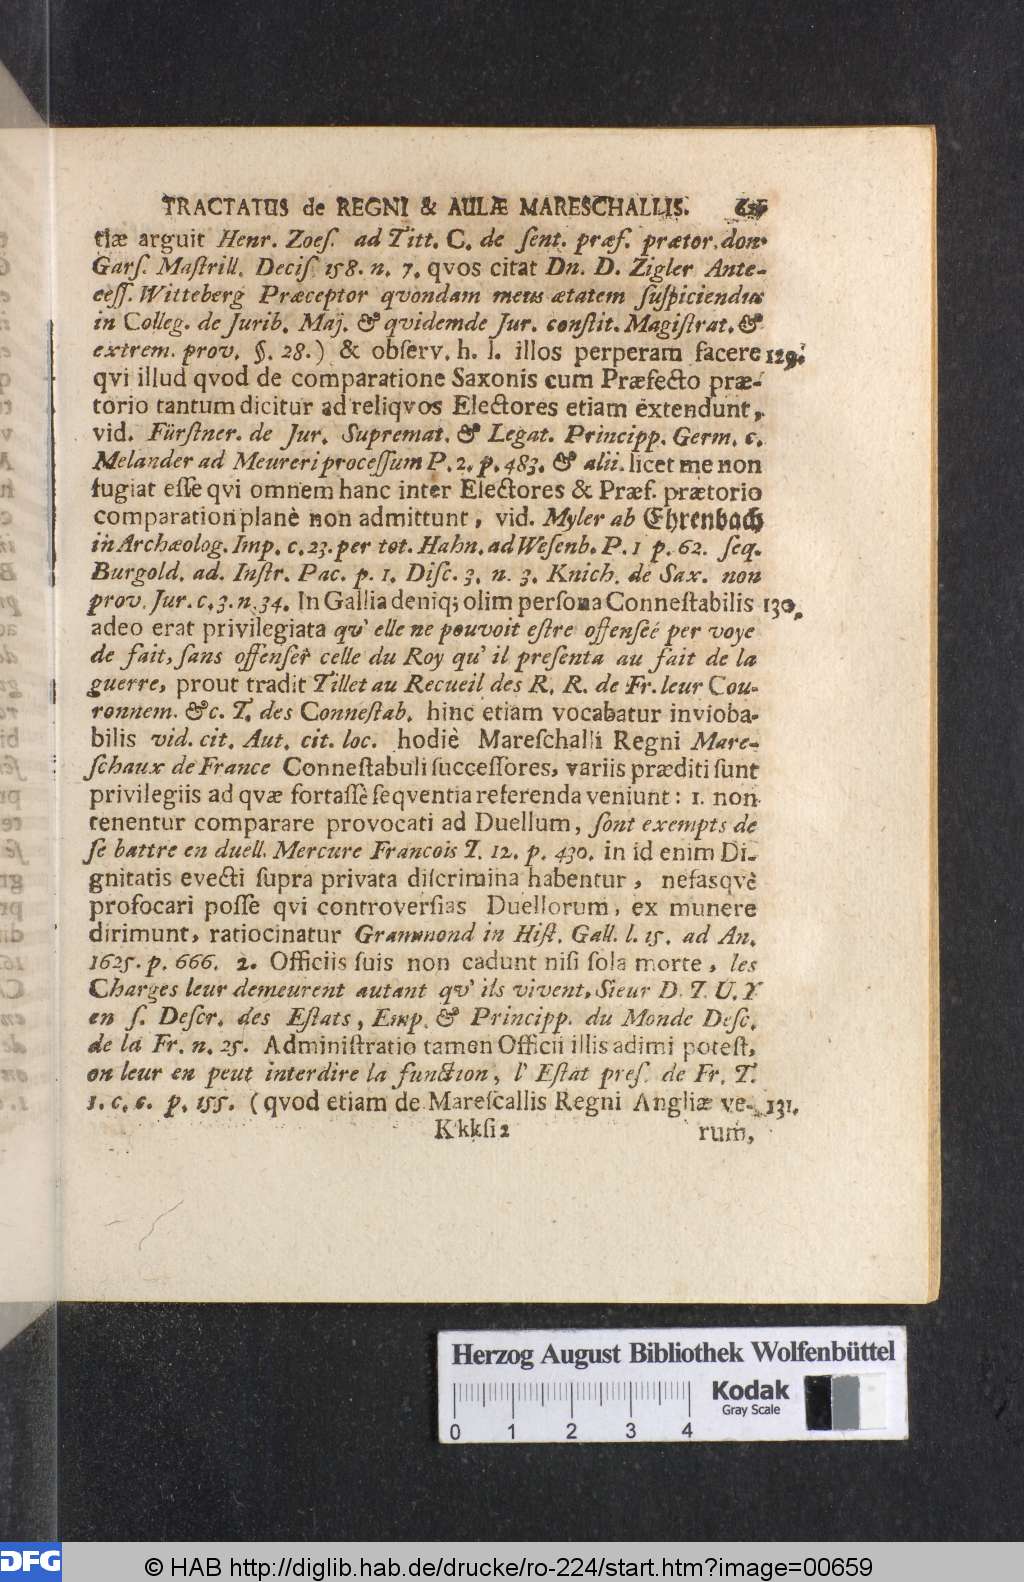 TRACTATUS de REGNI & AULÆ MARESCHALLIS.
tiæ arguit Henr. Zoeſ. ad Titt. C. de ſent. præf. prætor. don.
Garſ. Maſtrill. Deciſ. 158. n. 7. qvos citat Dn. D. Zigler Ante-
ceſſ. Witteberg Præceptor qvondam meus ætatem ſuſpiciendus
in Colleg. de Jurib. Maj. & qvidemde Jur. conſtit. Magiſtrat. &
extrem. prov. §. 28.) & obſerv. h. l. illos perperam facere 129.
qvi illud qvod de comparatione Saxonis cum Præfecto præ-
torio tantum dicitur ad reliqvos Electores etiam extendunt,
vid. Fürſtner. de Jur. Supremat. & Legat. Principp. Germ. c.
Melander ad Meureri proceſſum P. 2. p. 483. & alii. licet me non
fugiat eſſe qvi omnem hanc inter Electores & Præf. prætorio
comparation planè non admittunt, vid. Myler ab Ehrenbach
in Archæolog. Imp. c. 23. per tot. Hahn. ad Weſenb. P. 1 p. 62. ſeq.
Burgold. ad. Inſtr. Pac. p. 1. Diſc. 3. n. 3. Knich. de Sax. non
prov. Jur. c. 3. n. 34. In Gallia deniq; olim perſona Conneſtabilis 130.
adeo erat privilegiata qu' elle ne pouvoit eſtre offenſeé per voye
de fait, ſans offenſer celle du Roy qu' il preſenta au fait de la
guerre, prout tradit Tillet au Recueil des R. R. de Fr. leur Cou-
ronnem. &c. T. des Conneſtab. hinc etiam vocabatur invioba-
bilis vid. cit. Aut. cit. loc. hodiè Mareſchalli Regni Mare-
ſchaux de France Conneſtabuli ſucceſſores, variis præditi ſunt
privilegiis ad qvæ fortaſſè ſeqventia referenda veniunt: 1. non
tenentur comparare provocati ad Duellum, ſont exempts de
ſe battre en duell. Mercure Francois T. 12. p. 430. in id enim Di-
gnitatis evecti ſupra privata diſcrimina habentur, nefasqvè
profocari poſſe qvi controverſias Duellorum, ex munere
dirimunt, ratiocinatur Grammond in Hiſt. Gall. l. 15. ad An.
1625. p. 666. 2. Officiis ſuis non cadunt niſi ſola morte, les
Charges leur demeurent autant qv' ils vivent, Sieur D. T. U. Y
en ſ. Deſcr. des Eſtats, Emp. & Principp. du Monde Deſc.
de la Fr. n. 25. Adminiſtratio tamen Officii illis adimi poteſt,
on leur en peut interdire la function, l' Eſtat preſ. de Fr. T.
1. c. 6. p. 155. (qvod etiam de Mareſcallis Regni Angliæ ve- 131.
Kkkſi 2 rum,
Herzog August Bibliothek Wolfenbüttel
Kodak
Gray Scale
0 1 2 3 4
DFG
© HAB http://diglib.hab.de/drucke/ro-224/start.htm?image=00659